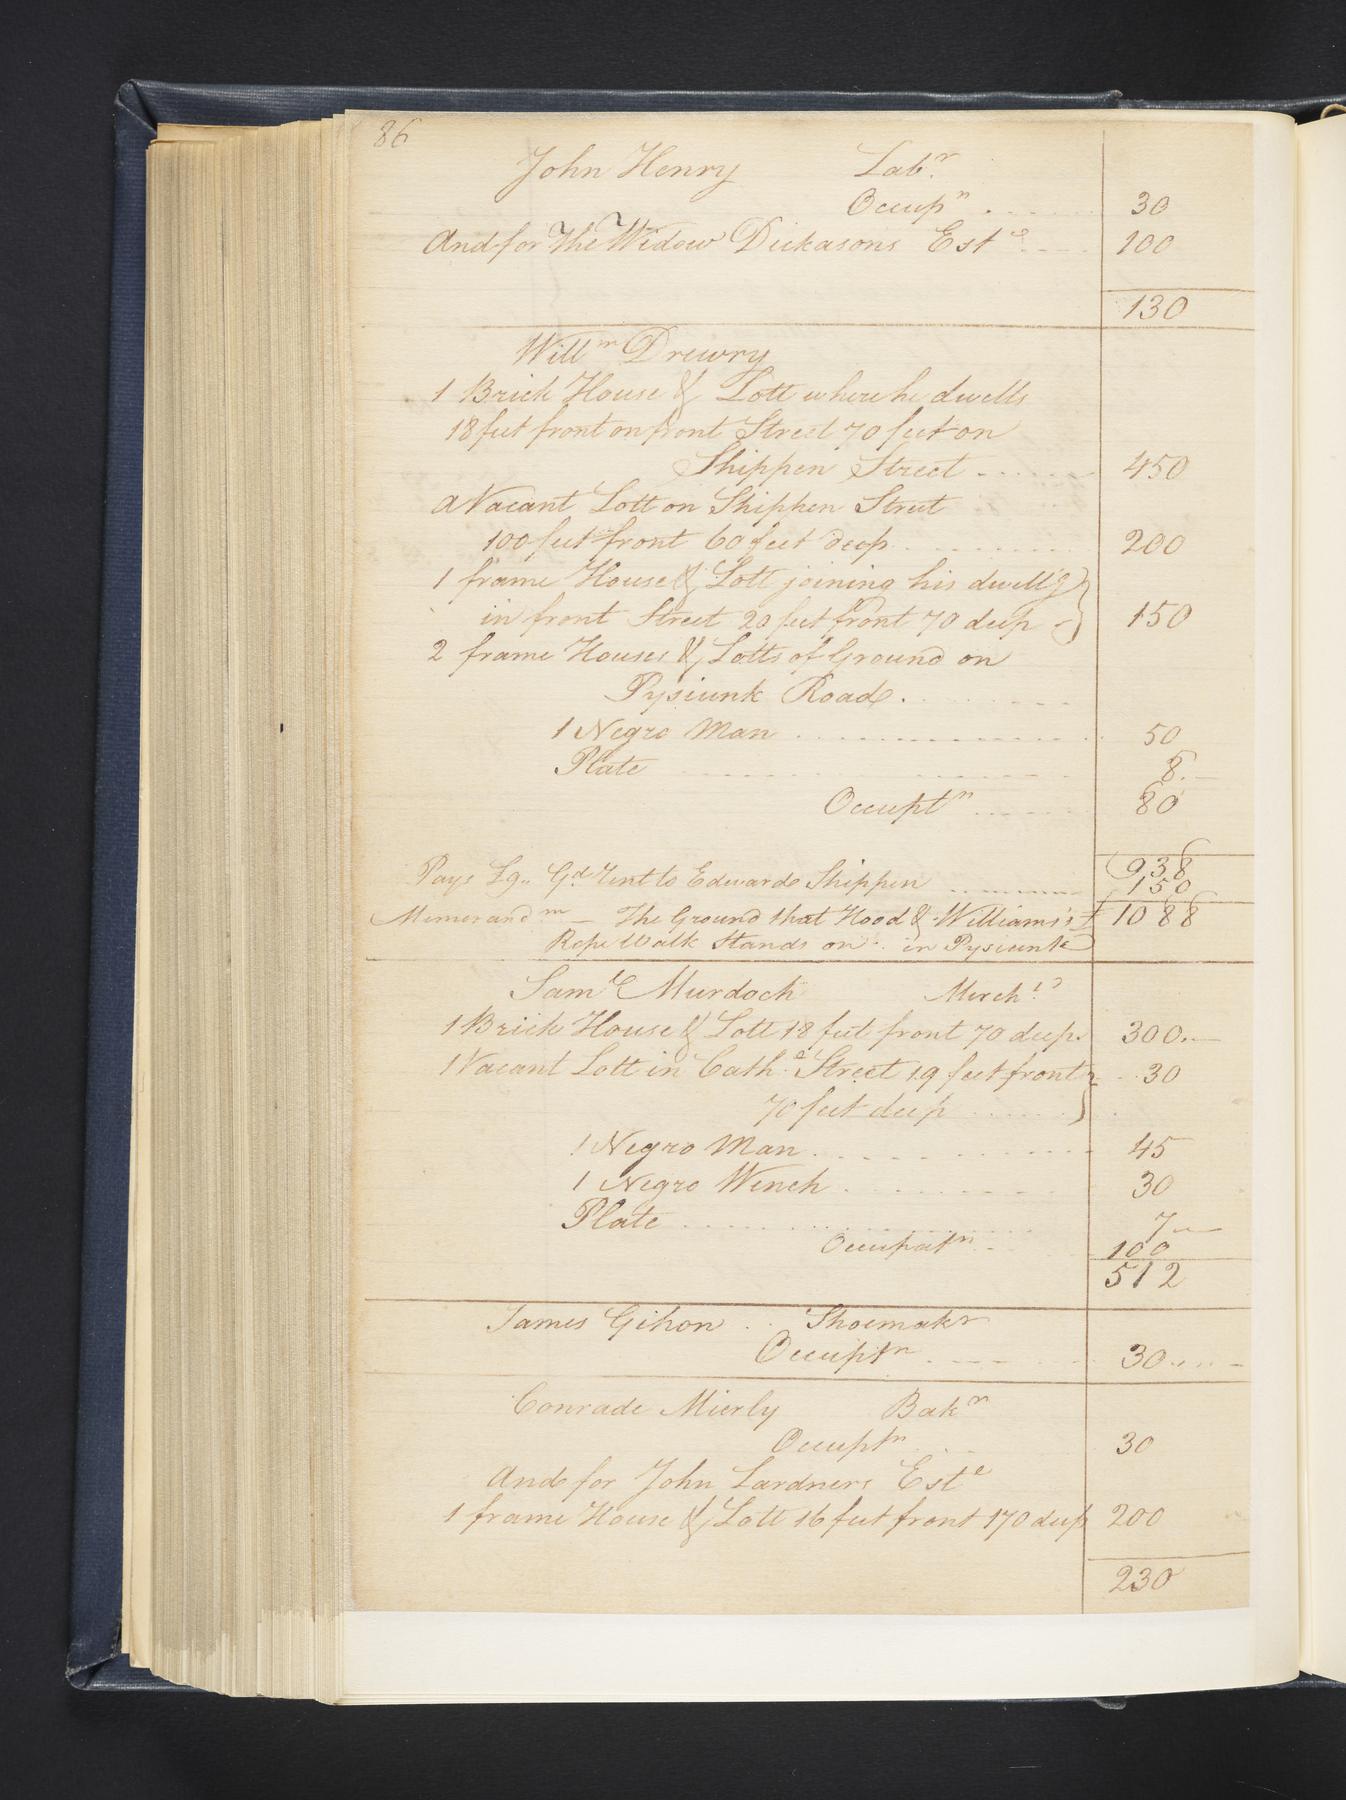 86
John Henry Labr.
Occupn . . . . . 30
And for The Widow Dickasons Este . . . . 100
130
Willm Drewry
1 Brick House & Lott where he dwells
18 feet front on front Street 70 feet on
Shippen Street . . . . . . 450
a Vacant Lott on Shippen Street
100 feet front 60 feet deep . . . . . . . . 200
1 frame House & Lott joining his dwellg
in front Street 20 feet front 70 deep - 150
2 frame Houses & Lotts of Ground on
Pysiunk Road . . . . . . . .
1 Negro Man . . . . . . . . . . . . . . . 50
Plate . . . . . . . . . . . . . . 8.—
Occuptn . . . . . . 80
938
Pays £9.. Gd Rent to Edward Shippen . . . . . . . . 150
Memorandm — The Ground that Hood & Williams's £ 1088
Rope Walk Stands on . . in Pysiunk
Saml Murdock Mercht.
1 Brick House & Lott 18 feet front 70 deep. 300.—
1 Vacant Lott in Cathe. Street 19 feet front 30
70 feet deep . . . . . .
1 Negro Man . . . . . . . . . . . 45
1 Negro Wench . . . . . . . . . 30
Plate . . . . . . . . . . . . . . . 7 —
Occupatn . . 100
512
James Gihon . . Shoemakr
Occuptn . . . . . . 30 . . . . -
Conrade Mierly Bakr
Occuptn . . . 30
And for John Lardners Este
1 frame House & Lott 16 feet front 170 deep 200
230